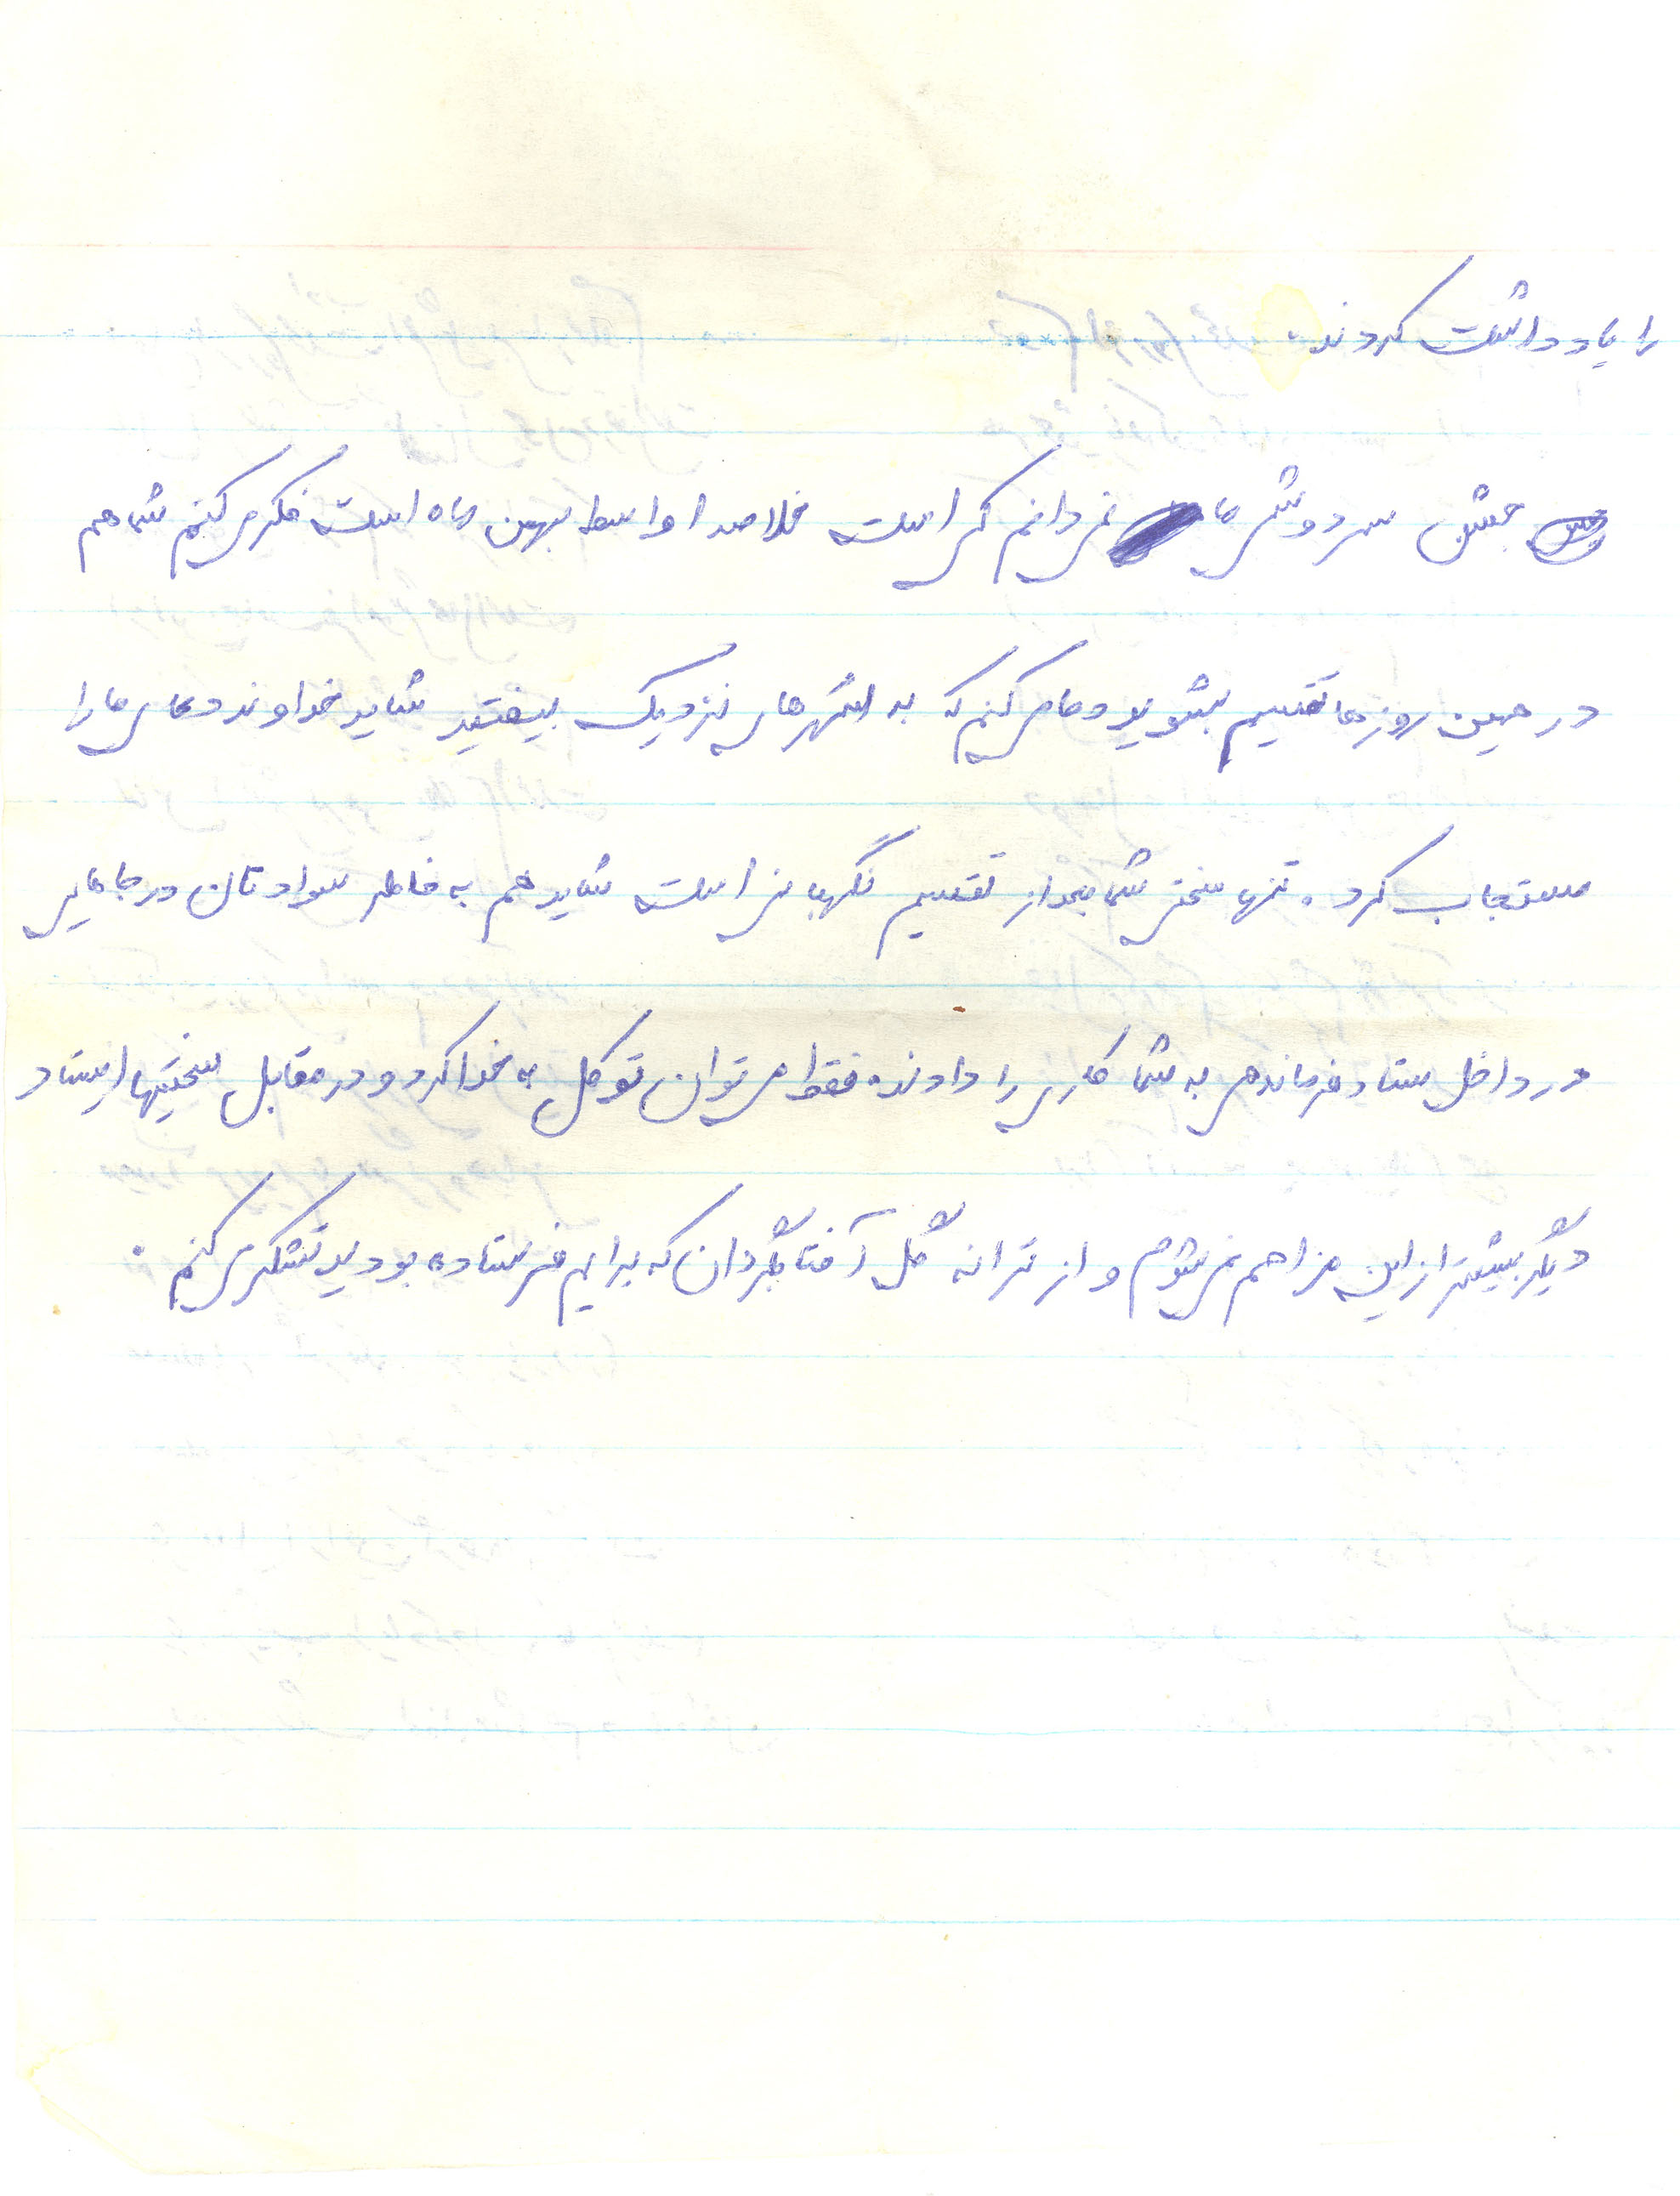 را یادداشت کردند.
جشن سردوشی ما نمی دانم کی است خلاصه اواسط بهمن ماه است فکر می کنم شما هم
در همین روزها تقسیم بشوید دعا می کنم که به شهرهای نزدیک بیفتید شاید خداوند دعای ما را
مستجاب کرد. تنها سختی شما بعد از تقسیم نگهبانی است شاید هم به خاطر سوادتان در جاهایی
در داخل ستاد فرماندهی به شما کاری را دادند. فقط می توان توکل به خدا کرد و در مقابل سختیها ایستاد
دیگر بیشتر از این مزاحم نمی شوم و از ترانه گل آفتابگردان که برایم فرستاده بودید تشکر می کنم.